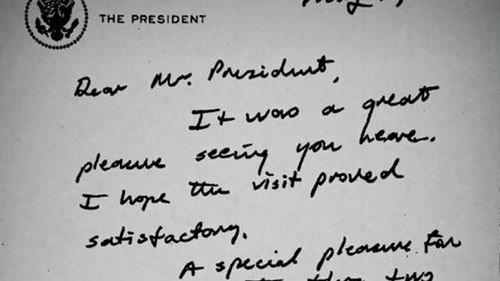 THE PRESIDENT
Dear Mr. President,
It was a great
pleasure seeing you
I hope the visit proved
satisfactory.
A special pleasure for
two